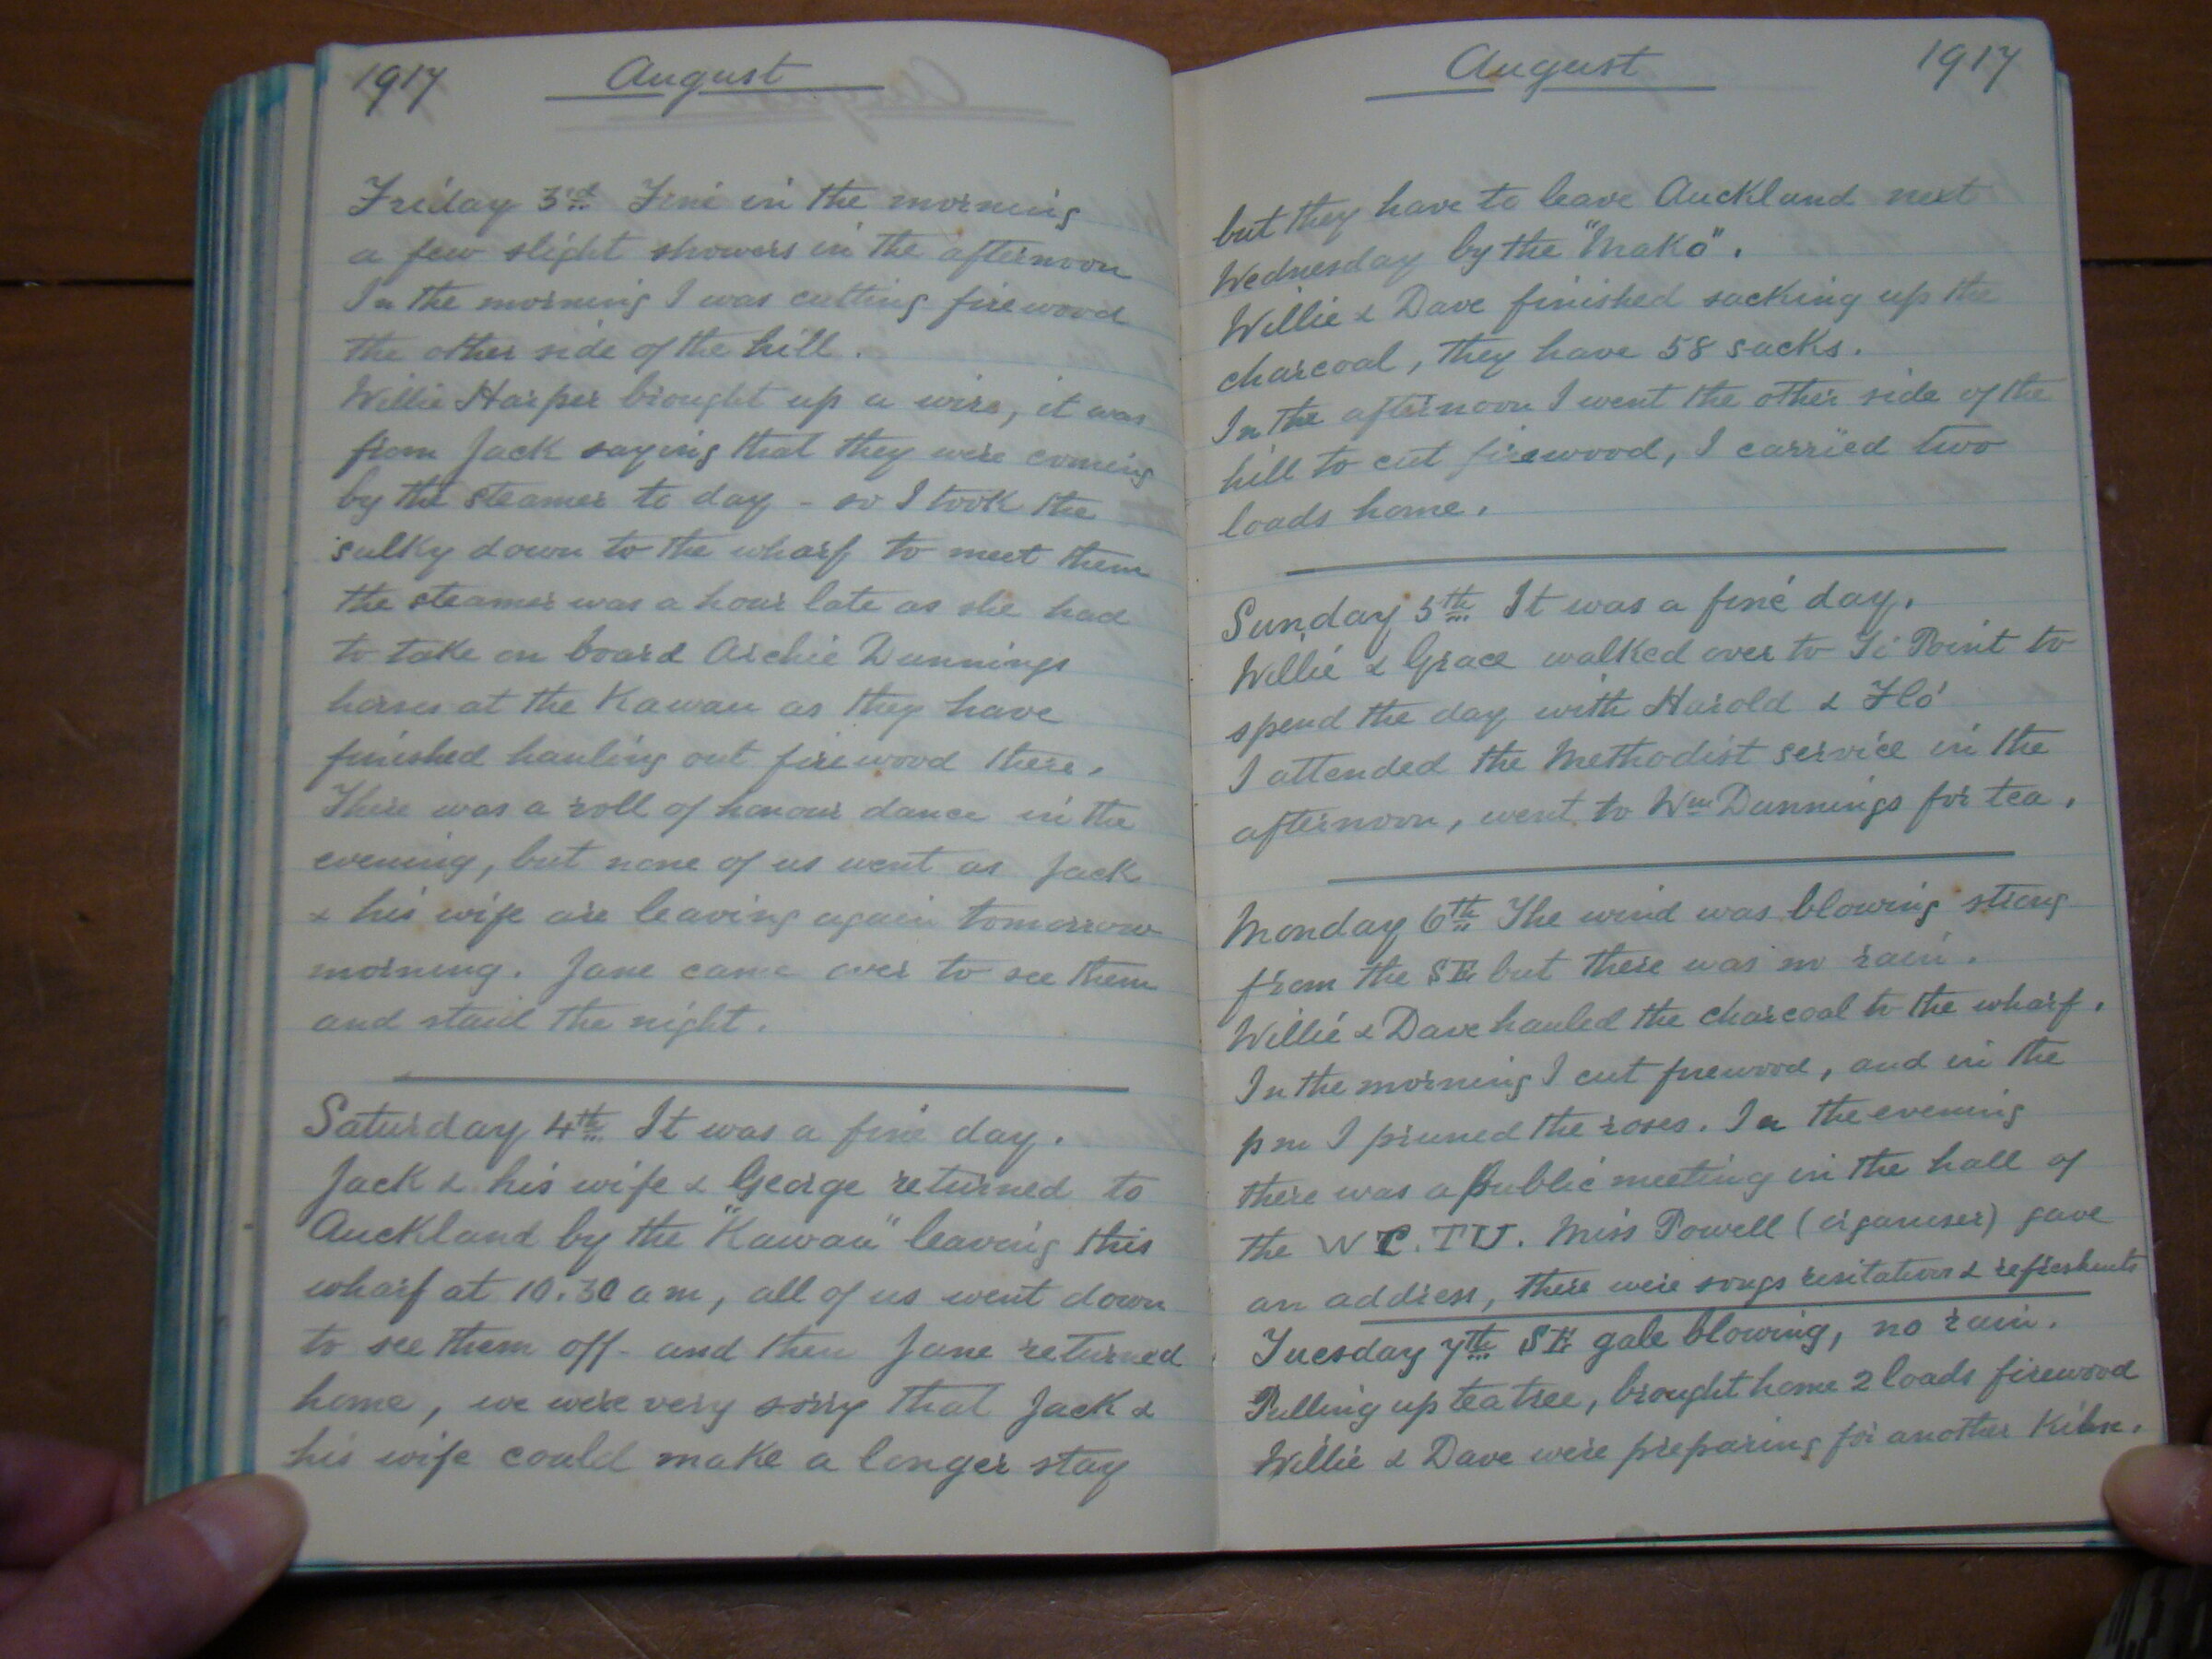 1917 August
Friday 3rd Fine in the morning
a few slight showers in the afternoon
In the morning I was cutting firewood
the other side of the hill.
Willie Harper brought up a wire, it was
from Jack saying that they were coming
by the steamer to day - so I took the
sulky down to the wharf to meet them
the steamer was a hour late as she had
to take on board Archie Dunnings
horses at the Kawau as they have
finished hauling out firewood there.
There was a roll of honour dance in the
evening, but none of us went as Jack
& his wife are leaving again tomorrow
morning. Jane came over to see them
and staid the night.
Saturday 4th It was a fine day.
Jack & his wife & George returned to
Auckland by the "Kawau" leaving this
wharf at 10.30 am, all of us went down
to see them off - and then Jane returned
home, we were very sorry that Jack &
his wife could make a longer stay
August 1917
but they have to leave Auckland next
Wednesday by the "Mako".
Willie & Dave finished sacking up the
charcoal, they have 58 sacks.
In the afternoon I went the other side of the
hill to cut firewood, I carried two
loads home.
Sunday 5th It was a fine day.
Willie & Grace walked over to Ti Point to
spend the day with Harold & Flo
I attended the Methodist service in the
afternoon, went to Wm Dunnings for tea.
Monday 6th The wind was blowing strong
from the SE but there was no rain.
Willie & Dave hauled the charcoal to the wharf.
In the morning I cut firewood, and in the
pm I pruned the roses. In the evening
there was a public meeting in the hall of
the W C. T U. Miss Powell (organiser) gave
an address, there were songs resitations & refreshments
Tuesday 7th SE gale blowing, no rain.
Pulling up tea tree, brought home 2 loads firewood
Willie & Dave were preparing for another Kiln.